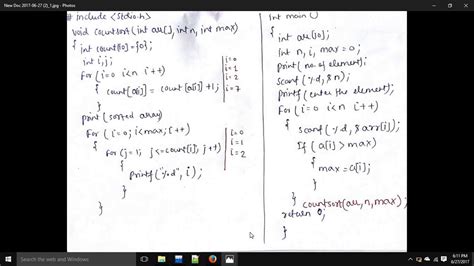 New Doc 2017-06-27 (2)_1.jpg - Photos
# include <stdio.h>
void countsort (int arr[], int n, int max)
{ int count[10] = {0};
int i, j;
for (i=0 i<n i++)
{ count[a[i]] = count[a[i]]+1;
}
i=0
i=1
i=2
i=7
print (sorted array)
for (i=0; i<max; i++)
{
for (j=1; j<=count[i]; j++)
{
printf("%d", i);
}
}
}
i=0
i=1
i=2
int main()
{
int arr[10];
int n, i, max=0;
print (no. of element);
scanf (%d, &n);
printf (enter the element);
for (i=0 i<n i++)
{
scanf (%d, &arr[i]);
if (a[i] > max)
{
max=a[i];
}
}
countsort(arr,n,max);
return 0;
}
Search the web and Windows
6:11 PM
6/27/2017